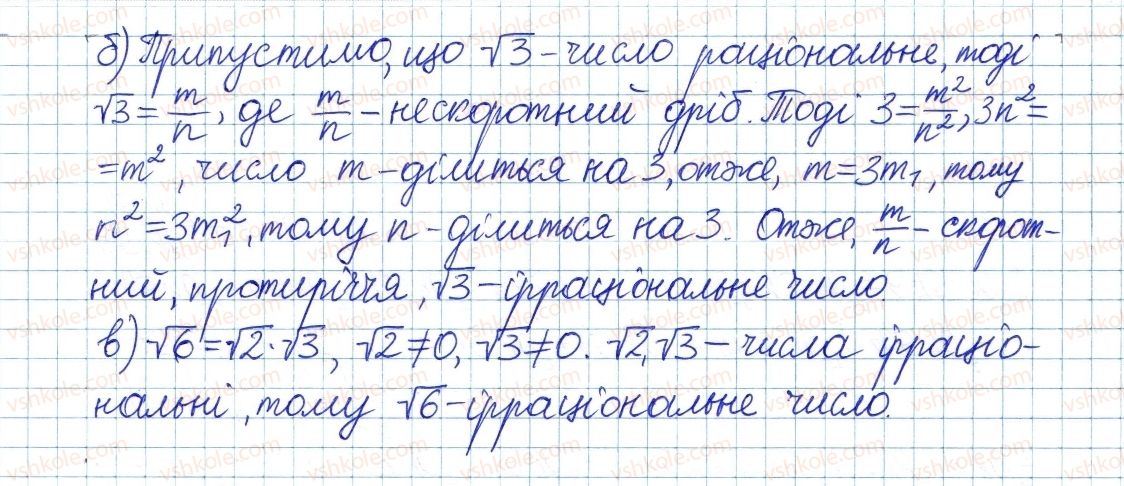 б) Припустимо, що √3 – число раціональне, тоді
√3 = m/n, де m/n – нескоротний дріб. Тоді 3 = m²/n², 3n² =
= m², число m – ділиться на 3, отже, m = 3m₁, тому
n² = 3m₁², тому n – ділиться на 3. Отже, m/n – скорот-
ний, протиріччя, √3 – ірраціональне число.
в) √6 = √2 · √3, √2 ≠ 0, √3 ≠ 0. √2, √3 – числа ірраціо-
нальні, тому √6 – ірраціональне число.